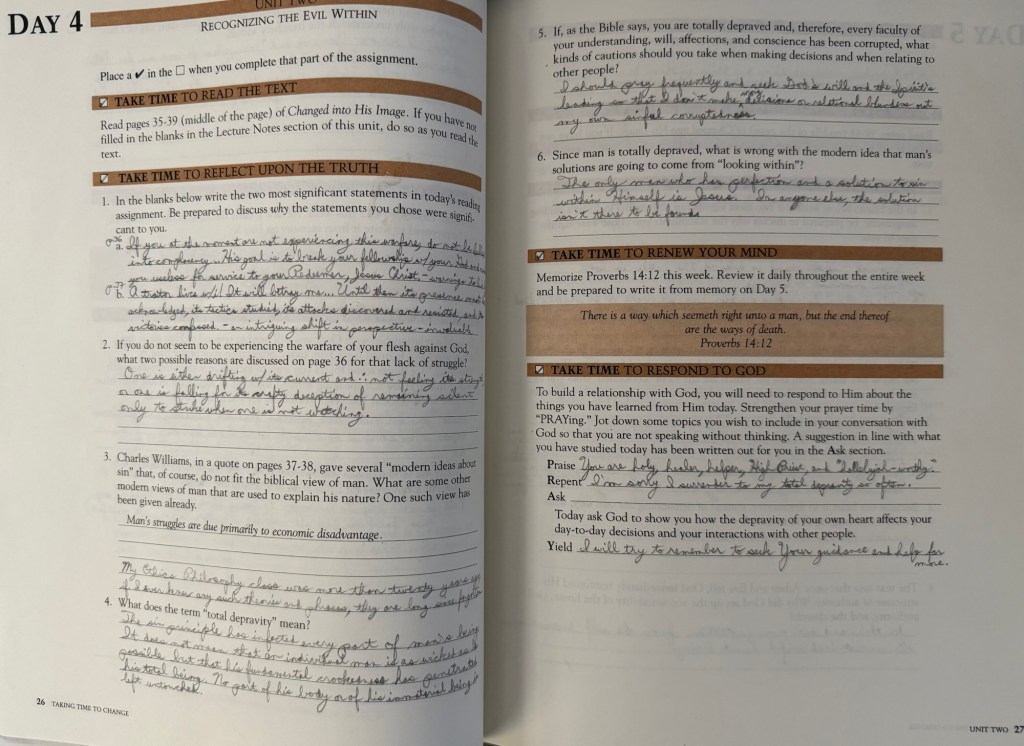 DAY 4
UNIT TWO
RECOGNIZING THE EVIL WITHIN
Place a ✔ in the ☐ when you complete that part of the assignment.
☑ TAKE TIME TO READ THE TEXT
Read pages 35-39 (middle of the page) of Changed into His Image. If you have not
filled in the blanks in the Lecture Notes section of this unit, do so as you read the
text.
☑ TAKE TIME TO REFLECT UPON THE TRUTH
1. In the blanks below write the two most significant statements in today's reading
assignment. Be prepared to discuss why the statements you chose were signifi-
cant to you.
a. If you at the moment are not experiencing this warfare, do not be
into complacency... His goal is to break your fellowship w/ your God and
you useless for service to your Redeemer, Jesus Christ.
b. A traitor lives w/i! It will betray me... Until then its presence must
acknowledged, its tactics studied, its attacks discovered and resisted, and its
victories confessed. - an intriguing shift in perspective - invaluable
2. If you do not seem to be experiencing the warfare of your flesh against God,
what two possible reasons are discussed on page 36 for that lack of struggle?
One is either drifting w/ its current and ∴ not feeling its
or one is falling for its crafty deception of remaining silent
only to strike when one is not watching.
3. Charles Williams, in a quote on pages 37-38, gave several "modern ideas about
sin" that, of course, do not fit the biblical view of man. What are some other
modern views of man that are used to explain his nature? One such view has
been given already.
Man's struggles are due primarily to economic disadvantage.
My Ethics Philosophy class was more than twenty years ago
If I ever knew any such theories and phrases, they are long since forgotten
4. What does the term "total depravity" mean?
The sin principle has infected every part of man's being
It does not mean that an individual man is as wicked as
possible but that his fundamental crookedness has penetrated
his total being. No part of his body or of his immaterial being
left untouched.
26 TAKING TIME TO CHANGE
5. If, as the Bible says, you are totally depraved and, therefore, every faculty of
your understanding, will, affections, and conscience has been corrupted, what
kinds of cautions should you take when making decisions and when relating to
other people?
I should pray frequently and seek God's will and the Spirit's
leading so that I don't make decisions or relational blunders out
my own sinful corruptedness.
6. Since man is totally depraved, what is wrong with the modern idea that man's
solutions are going to come from "looking within"?
The only man who has perfection and a solution to sin
within Himself is Jesus. In anyone else, the solution
isn't there to be found.
☑ TAKE TIME TO RENEW YOUR MIND
Memorize Proverbs 14:12 this week. Review it daily throughout the entire week
and be prepared to write it from memory on Day 5.
There is a way which seemeth right unto a man, but the end thereof
are the ways of death.
Proverbs 14:12
☑ TAKE TIME TO RESPOND TO GOD
To build a relationship with God, you will need to respond to Him about the
things you have learned from Him today. Strengthen your prayer time by
"PRAYing." Jot down some topics you wish to include in your conversation with
God so that you are not speaking without thinking. A suggestion in line with what
you have studied today has been written out for you in the Ask section.
Praise You are holy, healer, helper, High Priest, and "hallelujah-worthy."
Repent I'm sorry I surrender to my total depravity so often.
Ask
Today ask God to show you how the depravity of your own heart affects your
day-to-day decisions and your interactions with other people.
Yield I will try to remember to seek Your guidance and help far
more.
UNIT TWO 27